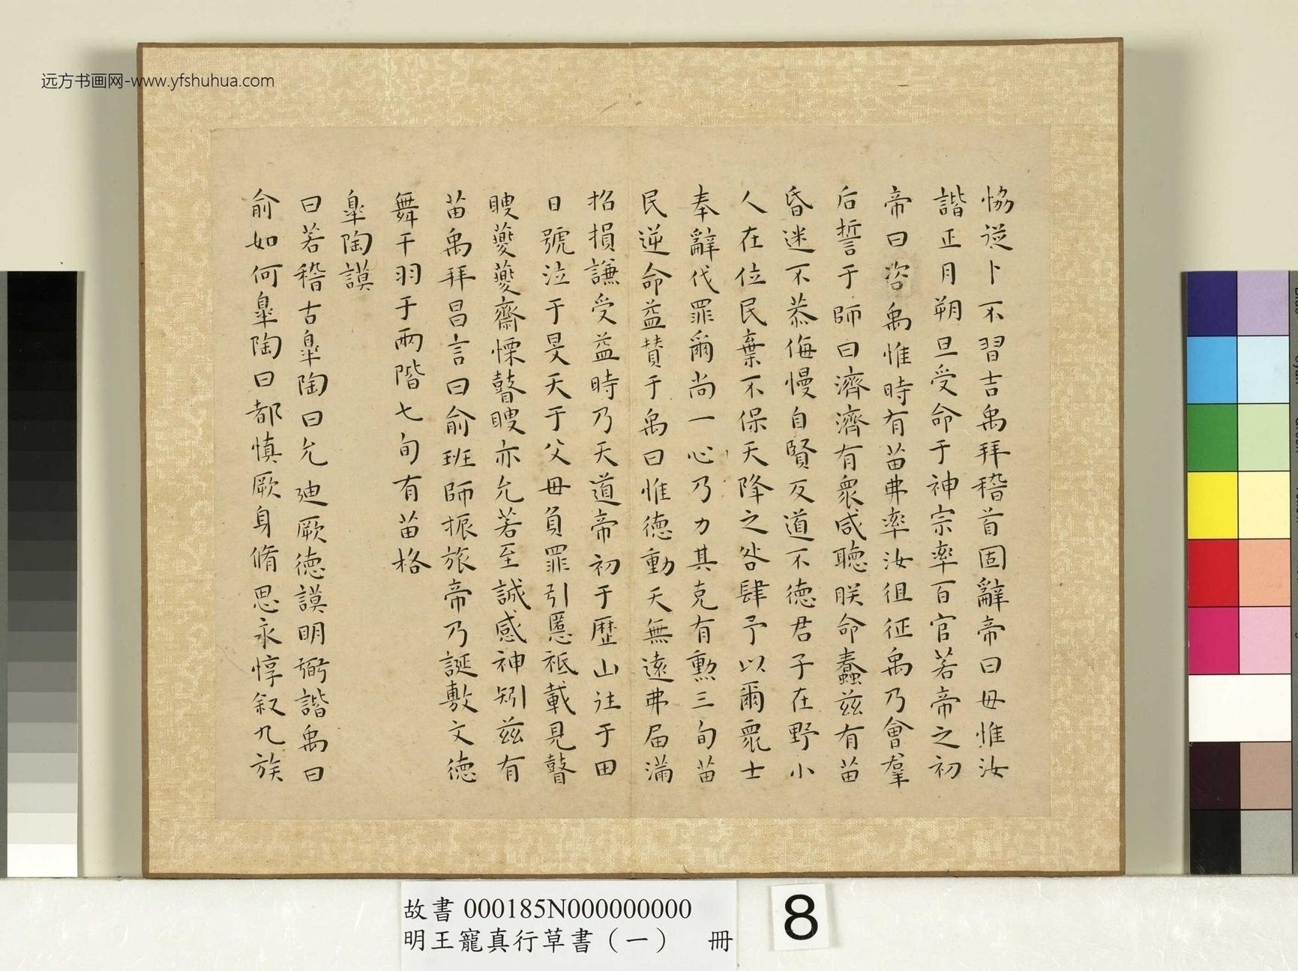 远方书画网-www.yfshuhua.com
恊從卜不習吉禹拜稽首固辭帝曰毋惟汝
諧正月朔旦受命于神宗率百官若帝之初
帝曰咨禹惟時有苗弗率汝徂征禹乃會羣
后誓于師曰濟濟有衆咸聽朕命蠢茲有苗
昏迷不恭侮慢自賢反道不德君子在野小
人在位民棄不保天降之咎肆予以爾衆士
奉辭伐罪爾尚一心乃力其克有勳三旬苗
民逆命益贊于禹曰惟德動天無遠弗屆滿
招損謙受益時乃天道帝初于歷山往于田
日號泣于旻天于父母負罪引慝祗載見瞽
瞍夔夔齋慄瞽瞍亦允若至誠感神矧茲有
苗禹拜昌言曰俞班師振旅帝乃誕敷文德
舞干羽于兩階七旬有苗格
臯陶謨
曰若稽古臯陶曰允迪厥德謨明弼諧禹曰
俞如何臯陶曰都慎厥身脩思永惇叙九族
故書 000185N000000000
明王寵真行草書（一） 冊
8